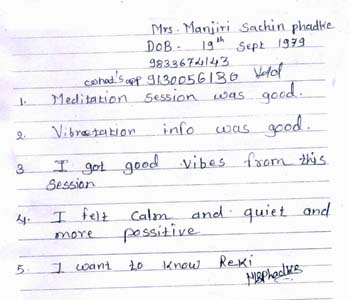 Mrs. Manjiri Sachin phadke
DOB. 19th Sept 1979
9833674143
what's app 9130056136
1. Meditation Session was good.
2. Vibratation info was good.
3 I got good vibes from this
Session
4. I felt calm and quiet and
more possitive
5. I want to know Reki
MSPhadke